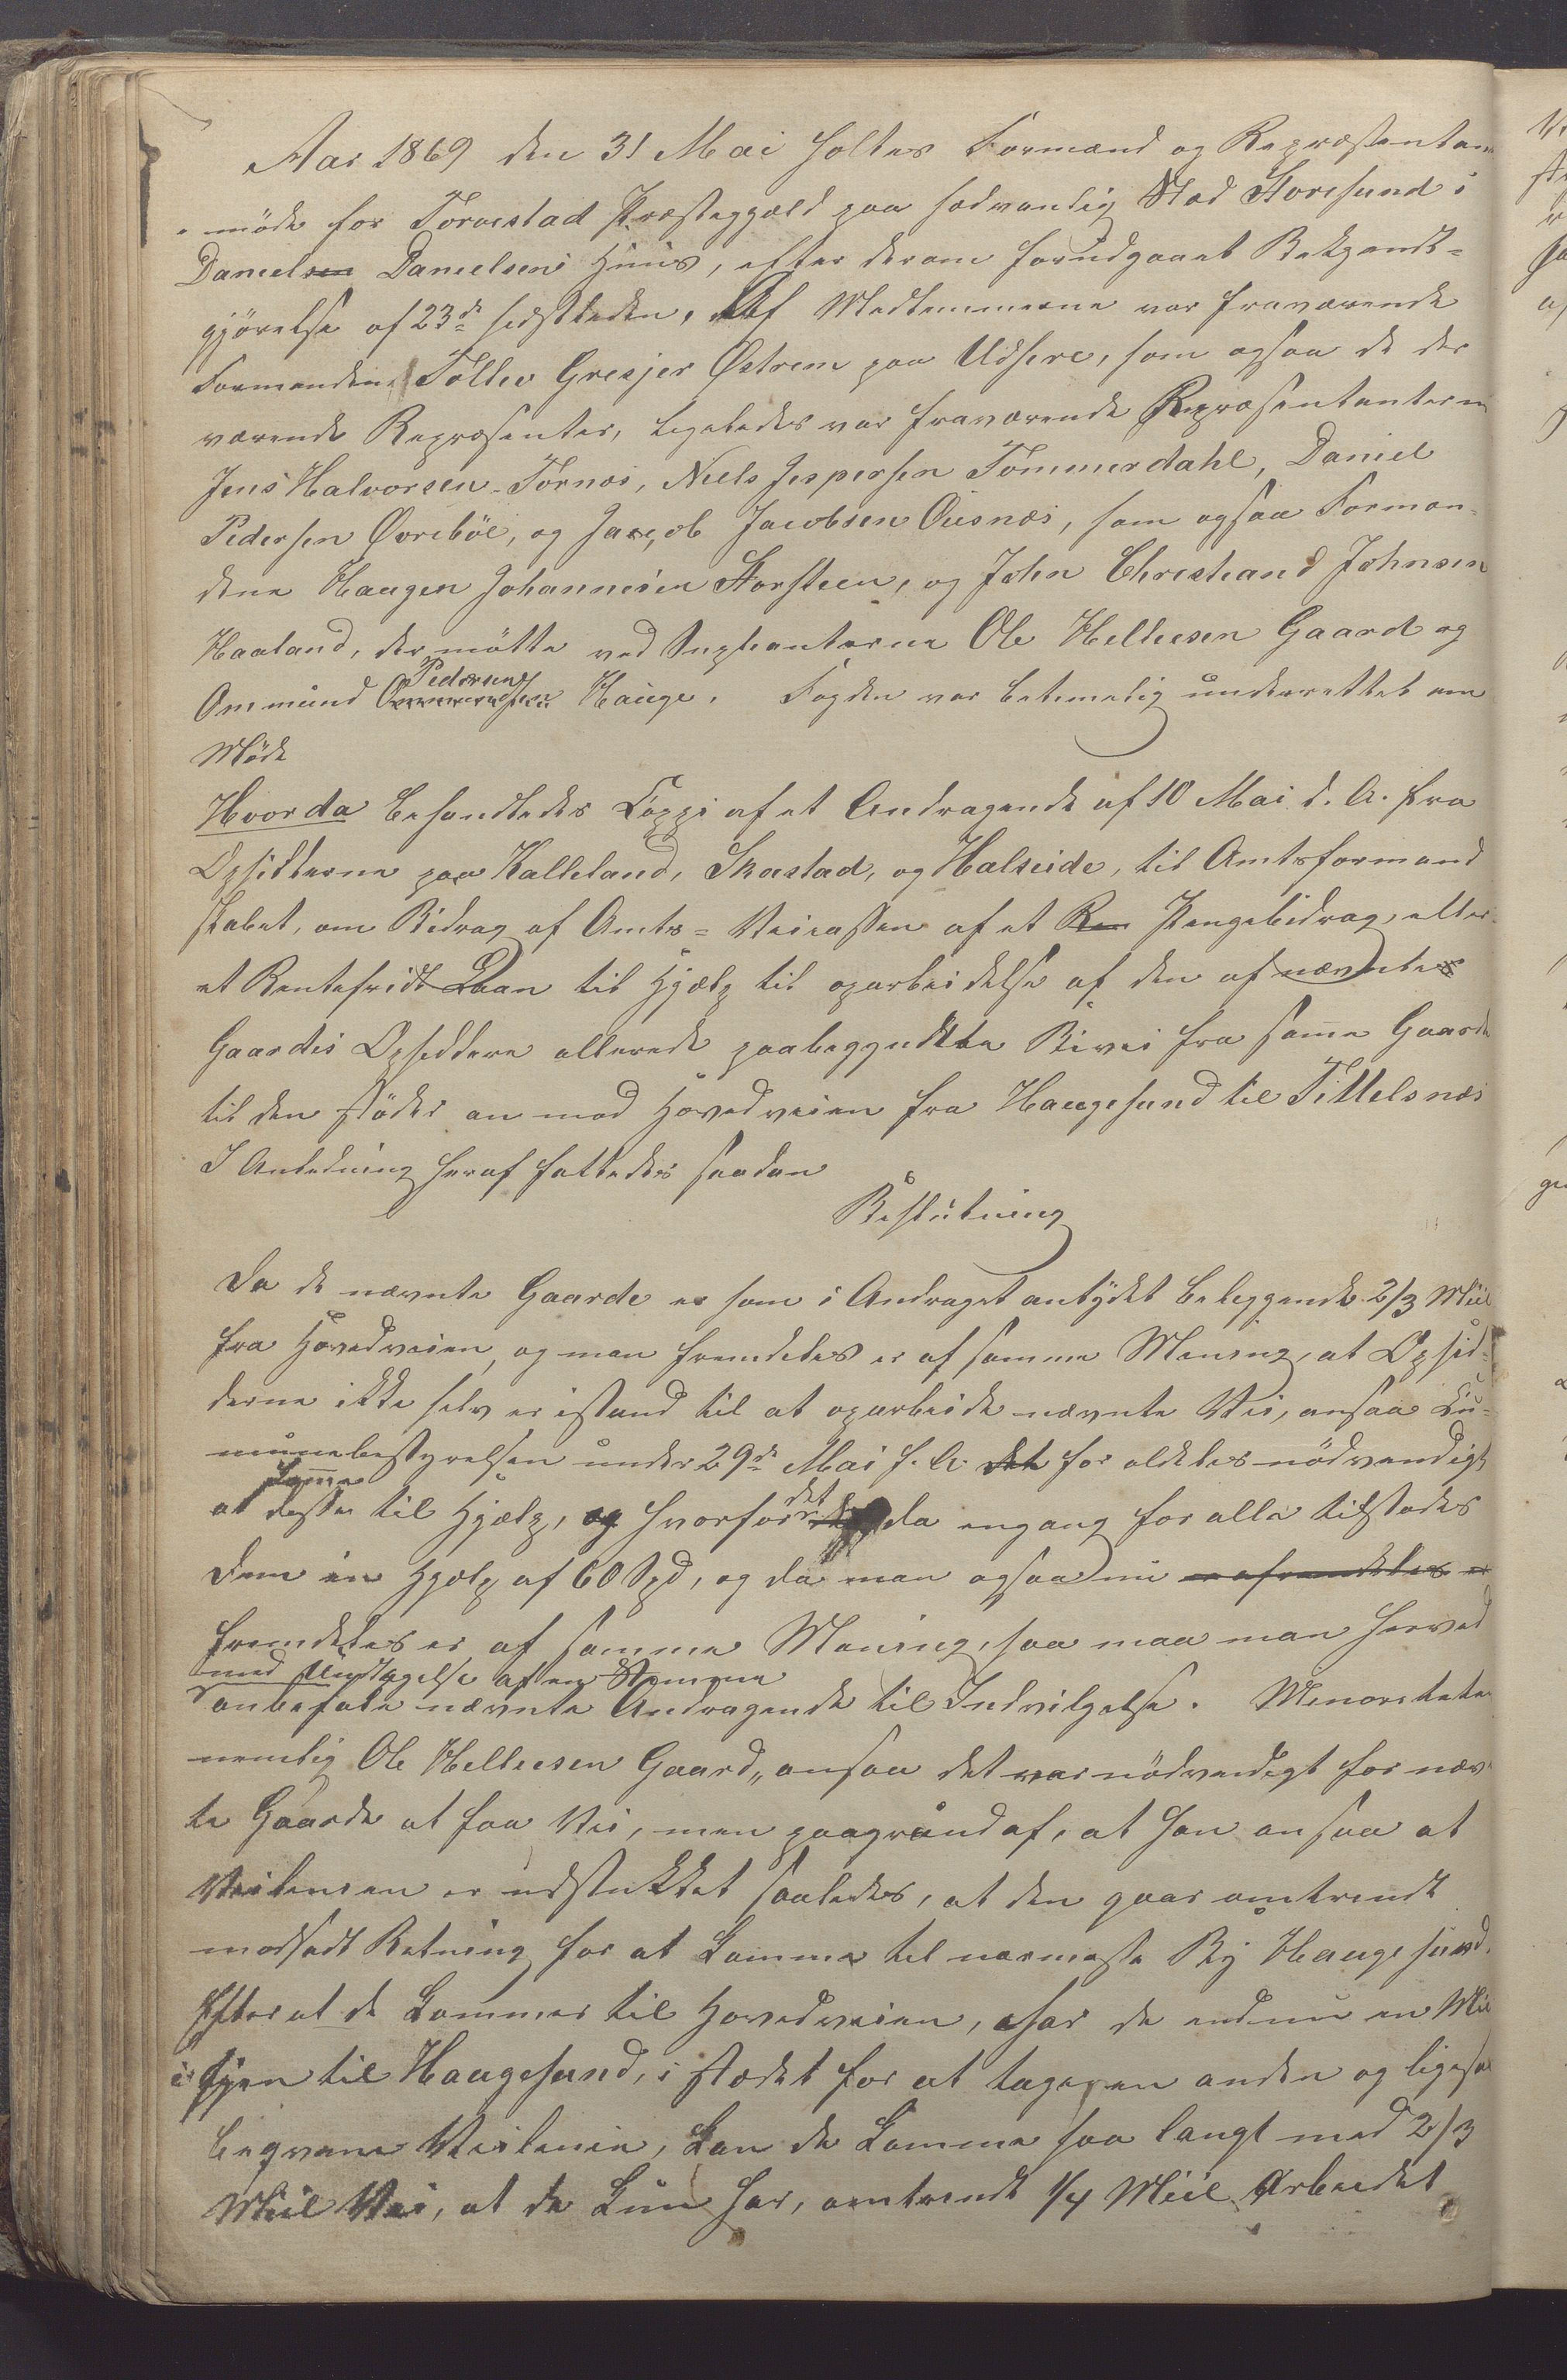 Aar 1869 den 31 Mai holtes Formænd og Repræsentan
möde for Torvestad Præstegjæld paa sædvanlig Stæd Storesund i
Danielsen Danielsens Huus, efter derom forudgaaet Bekjendt-
gjörelse af 23de sidstleden, Af Medlemmerne var fraværende
Formanden Tollev Gresjer Østrem paa Udsire, som ogsaa de der
værende Repræsenter, ligeledes var fraværende Repræsentantern
Jens Halvorsen Tornæs, Niels Jespersen Tömmerdahl, Daniel
Pedersen Øvreböe, og Jacob Jacobsen Ousnæs, som ogsaa Forman-
dene Haagen Johannesen Storsteen, og John Christian Johnsen
Haaland, der mötte ved Suplianterne Ole Helleesen Gaard og
Ommund Ommundsen Pedersen Hauge. Fogden var betimelig underrettet om
Möde
Hvorda behandledes Coppi af et Andragende af 10 Mai d. A. fra
Opsidderne paa Kalleland, Skaastad, og Halseide, til Amtsformand
skabet, om Bidrag af Amts-Veicassen af et Ren Pengebidrag, eller
et Rentefridt Laan til Hjælp til oparbeidelse af den af nævntes
Gaardes Opsiddere allerede paabegyndte Bivei fra samme Gaarde
til den stöder an mod Hovedveien fra Haugesund til Tittelsnæs
I Anledning heraf fattedes saadan
Beslutning
Da de nævnte Gaarde er som i Andraget antydet beliggende 2/3 Miil
fra Hovedveien, og man fremdeles er af samme Mening, at Opsid-
derne ikke selv er istand til at oparbeide nævnte Vei, ansaa Ku-
munebestyrelsen under 29de Mai f. A. det for aldeles nödvendigt
at komme disse til Hjælp, og hvorfor det da engang for alle tilstodes
dem en Hjælp af 60 Spd, og da man ogsaa nu er afremdeles er
fremdeles er af samme Mening, saa maa man herved
med Undtagelse af en Stemme
anbefale nævnte Andragende til Indvilgelse. Minoritete
nemlig Ole Helleesen Gaard, ansaa det var nödvendigt for næv
te Gaarde at faa Vei, men paagrund af, at han ansaa at
Veilenien er udstukket saaledes, at den gaar omtrendt
modsadt Retning for at komme til nærmeste By Haugesund.
Efter at de kommer til Hovedveien, har de endnu en Mi
igjen til Haugesund, i stædet for at tage en anden og ligesaa
beqvem Veilenie, kan de komme saa langt med 2/3
Miil Vei, at de kun har, omtrendt 1/4 Miil Arbeidet